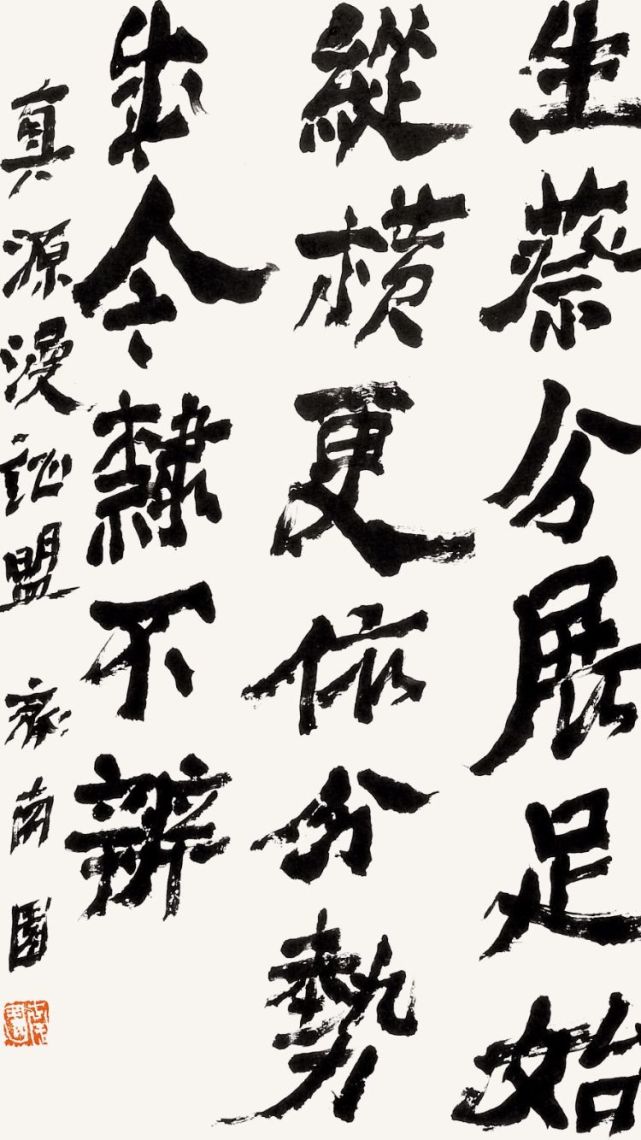 生蔡分展足始
縱橫更依分勢
成今隸不辨
真源漫盟 南園